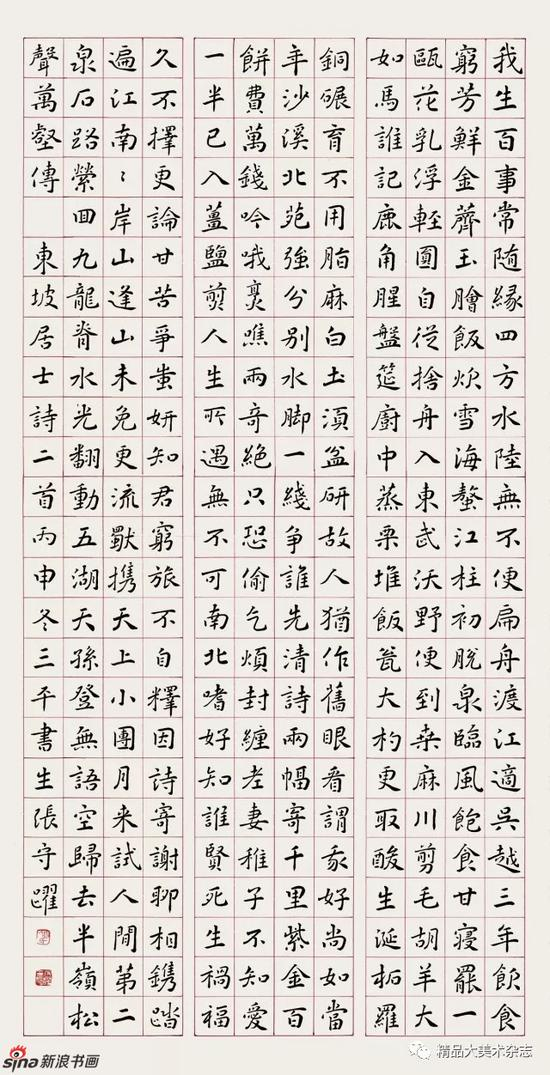 我生百事常隨緣四方水陸無不便扁舟渡江適吳越三年飲食
窮芳鮮金薺玉膾飯炊雪海螯江柱初脫泉臨風飽食甘寢罷一
甌花乳浮輕圓自從捨舟入東武沃野便到桑麻川剪毛胡羊大
如馬誰記鹿角腥盤筵廚中蒸粟堆飯瓮大杓更取酸生涎柘羅
銅碾弃不用脂麻白土須盆研故人猶作舊眼看謂我好尚如當
年沙溪北苑強分別水腳一綫爭誰先清詩兩幅寄千里紫金百
餅費萬錢吟哦烹噍兩奇絕只恐偷乞煩封纏老妻稚子不知愛
一半已入薑鹽剪人生所遇無不可南北嗜好知誰賢死生禍福
久不擇更論甘苦爭蚩妍知君窮旅不自釋因詩寄謝聊相鐫踏
遍江南々岸山逢山未免更流携天上小團月来試人間第二
泉石路縈回九龍脊水光翻動五湖天孫登無語空歸去半嶺松
聲萬壑傳 東坡居士詩二首丙申冬三平書生張守躍
sina新浪书画
精品大美术杂志